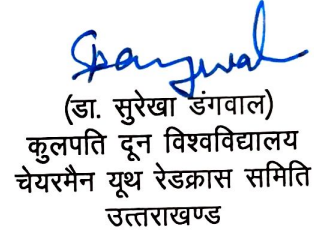 (डा. सुरेखा डंगवाल)
कुलपति दून विश्वविद्यालय
चेयरमैन यूथ रेडक्रास समिति
उत्तराखण्ड